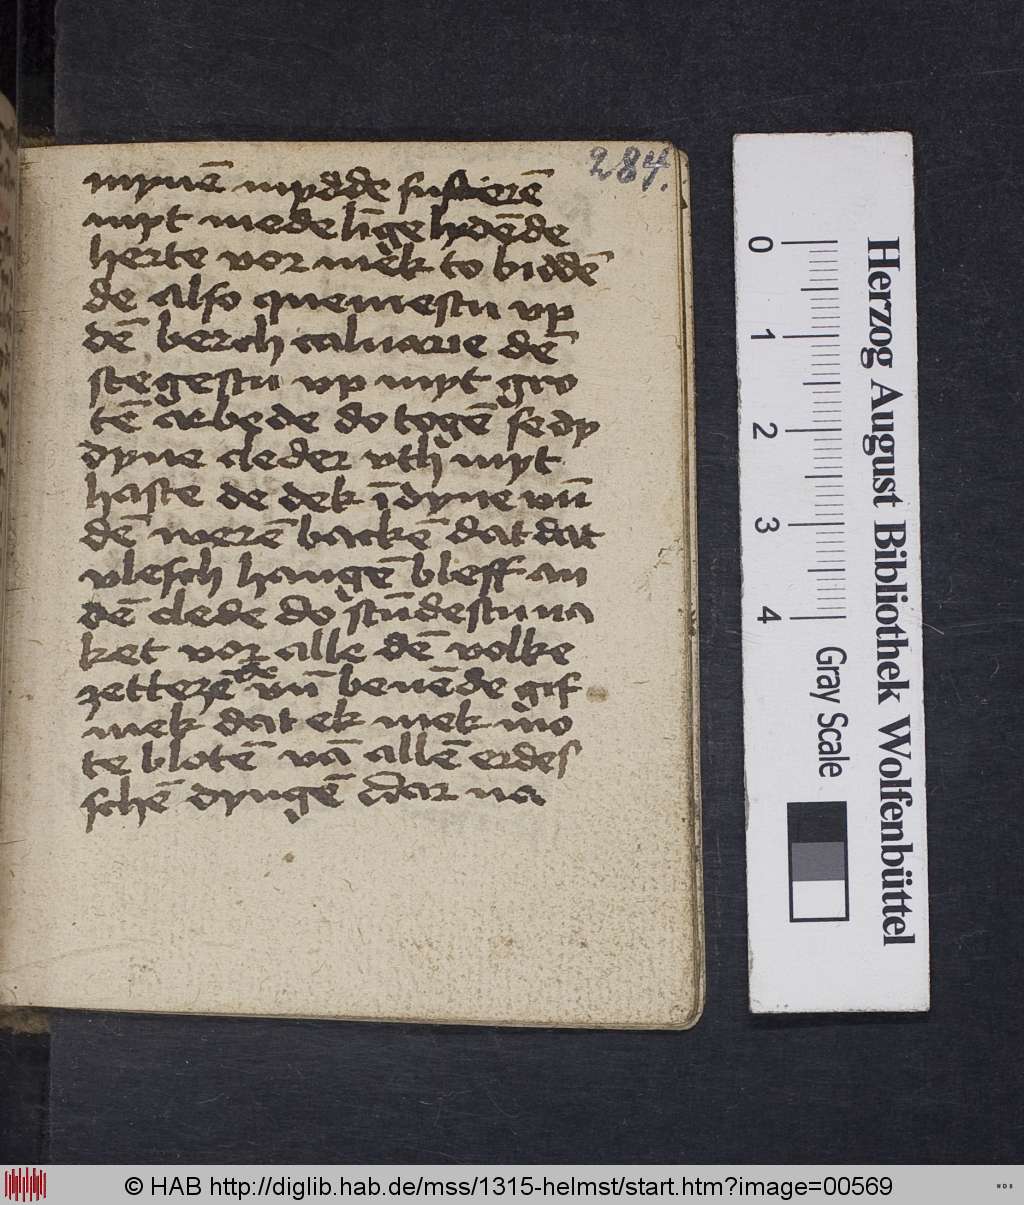 284.
mynē mydde susterē
myt medelīge lydēde
herte vor mek to biddē
de also quemestu vp
dē berch caluarie dē
stegestu vp myt gro
tē arbede do togē se dy
dyne cleder vth myt
haste de dek ī dyne vū
dē werē backē dat dat
vlesch hangē bleff an
dē clede do stūdestu na
ket vor alle dē volke
zetterē de vū beuēde gif
mek dat ek mek mo
te blotē vā allē erdes
schē dyngē dar na
Herzog August Bibliothek Wolfenbüttel
0 1 2 3 4
Gray Scale
© HAB http://diglib.hab.de/mss/1315-helmst/start.htm?image=00569